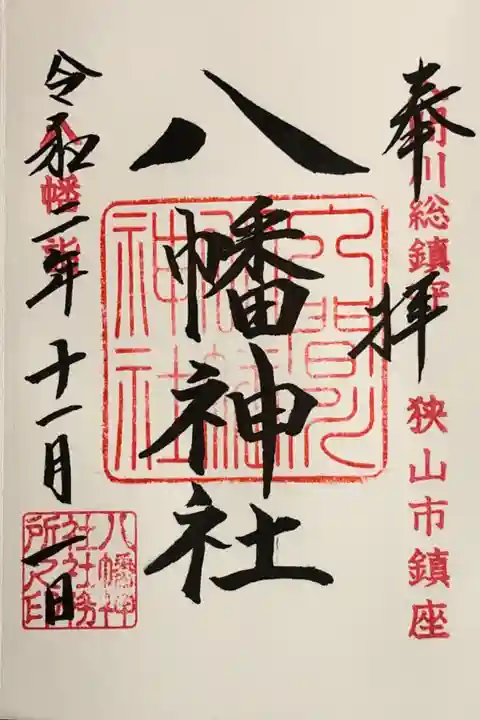 奉拝
川総鎮守 狭山市鎮座
八幡神社
入間川八幡神社
令和二年十一月一日
八幡神社社務所之印